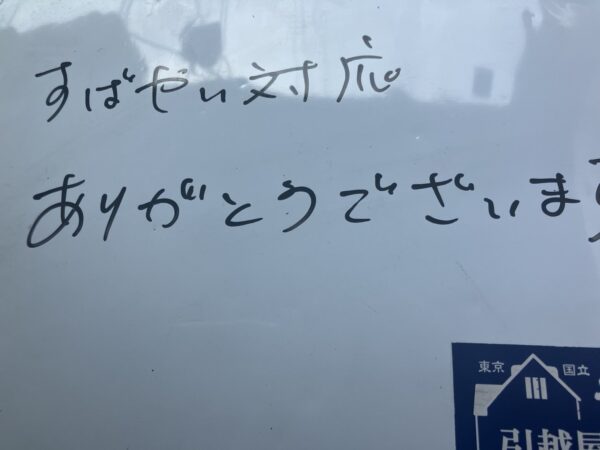 すばやい対応
ありがとうございます
東京 国立
引越屋